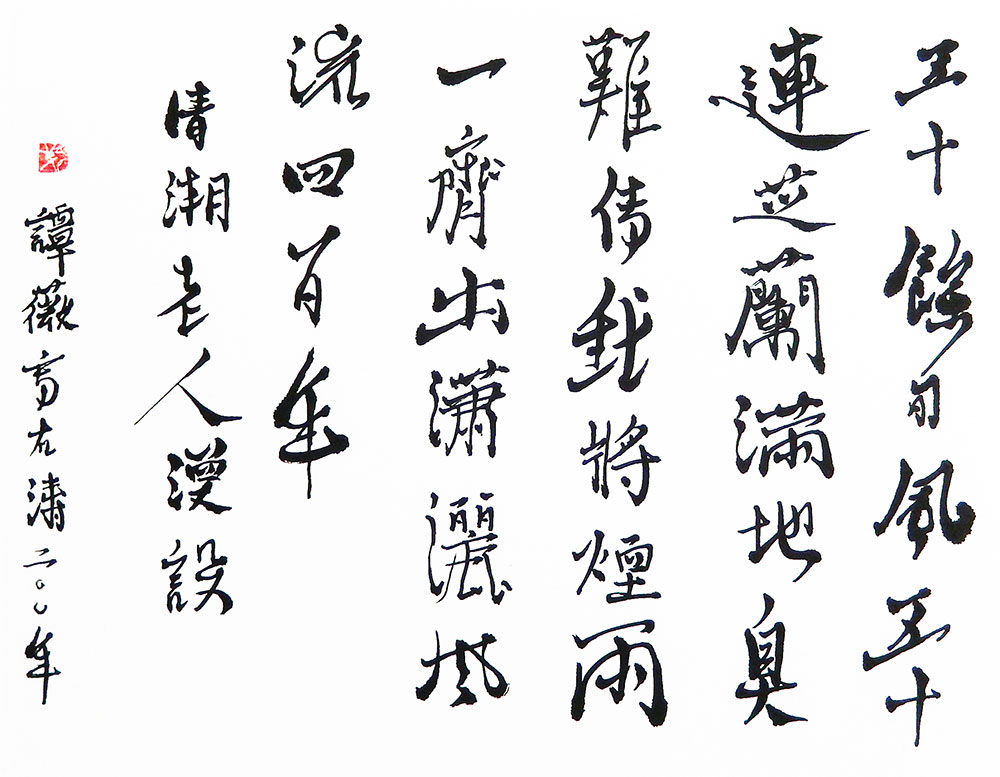 五十餘日風五十
連芝蘭滿地臭
難傳我將煙雨
一齊出瀟灑風
流四百年
清湘老人漫設
譚薇寫石濤二〇〇年